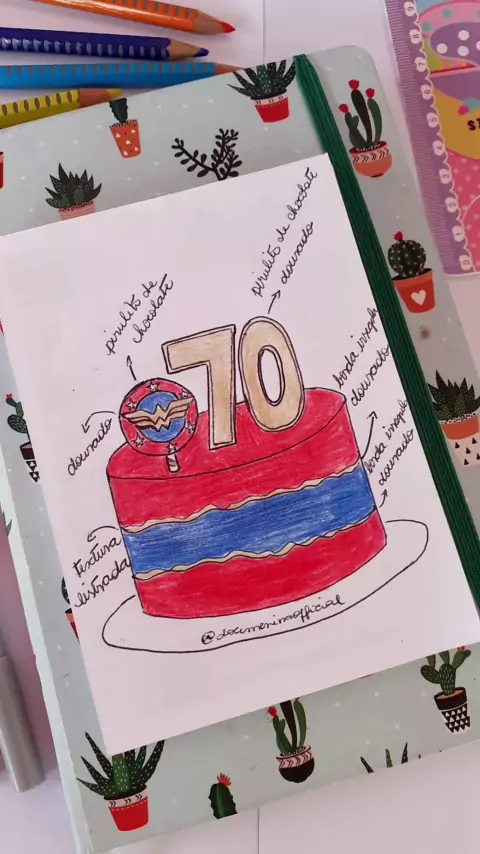 pirulito de chocolate
dourado
pirulito de
chocolate
dourado
70
borda irregular
dourado
borda irregular
dourado
textura
listrada
@documeninaofficial